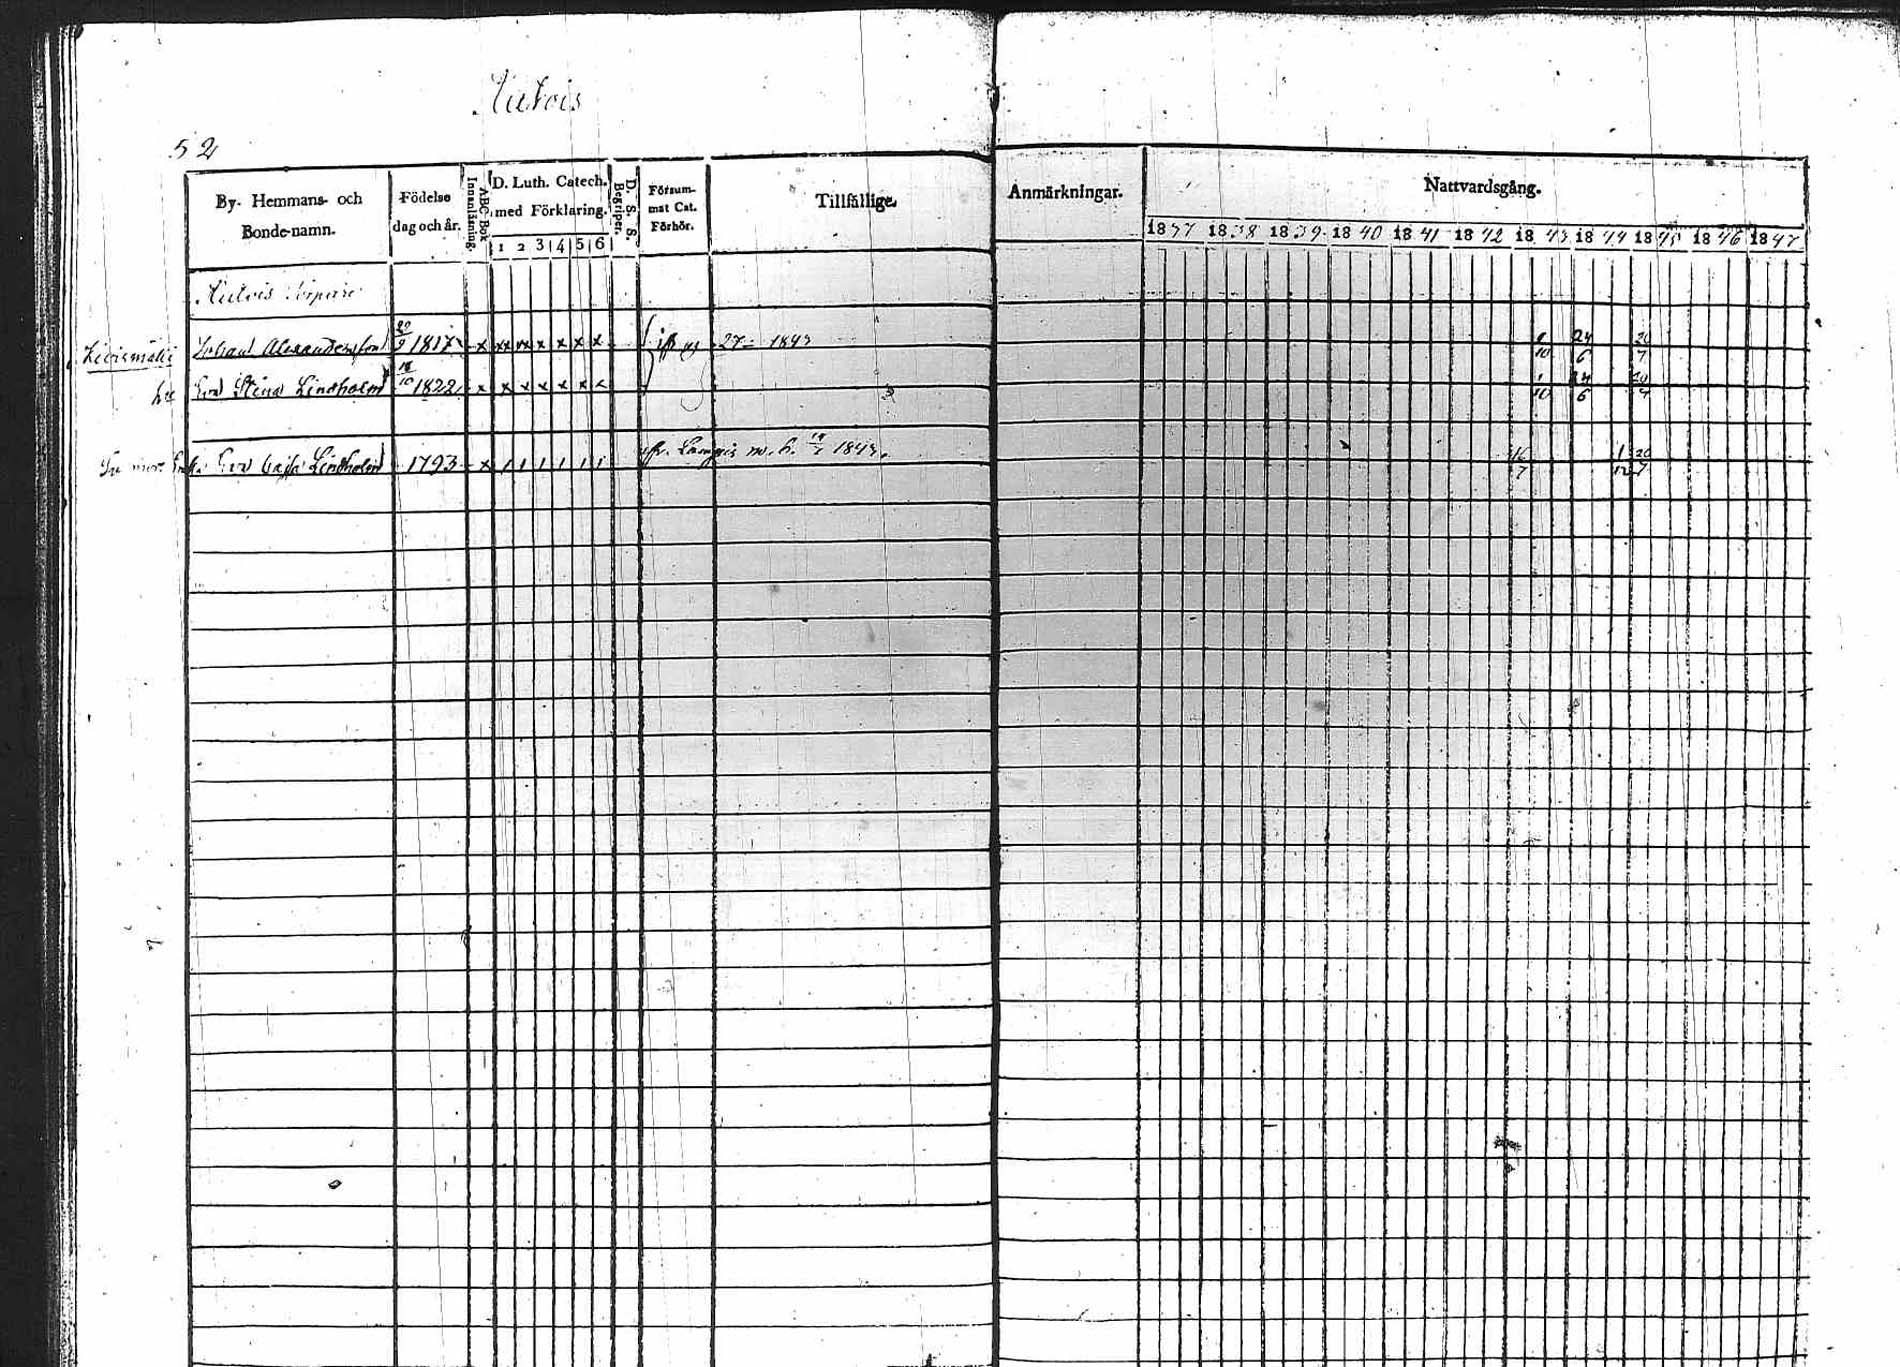 Autois
52
By- Hemmans- och Bonde-namn.
Födelse dag och år.
Innanläsning.
ABC Bok
D. Luth. Catech. med Förklaring.
1 2 3 4 5 6
D. S. S. Begriper.
Försum-
mat Cat.
Förhör.
Tillfällige.
Anmärkningar.
Nattvardsgång.
1837 1838 1839 1840 1841 1842 1843 1844 1845 1846 1847
Autois
Johan Alexandersson 29/9 1817 x xx xx x x x x 27 1843 1/10 24/6 20/7
Eva Stina Lindholm /10 1822 x x x x x x x 1/10 24/6 20/7
Eva Cajsa Lindholm 1793 x 1 1 1 1 1 1 fr. 1843. 16/7 1/12 20/7